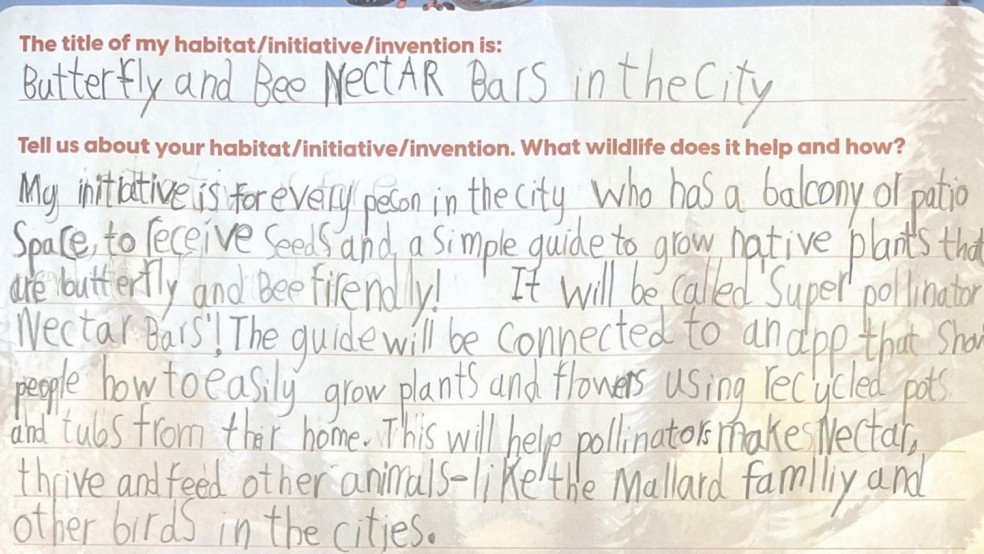 The title of my habitat/initiative/invention is:
Butterfly and Bee NectAR Bars in the City
Tell us about your habitat/initiative/invention. What wildlife does it help and how?
My initiative is for every peson in the city who has a balcony or patio
Space, to receive seeds and a simple guide to grow native plants that
are butterfly and Bee firendly! It will be called "Super pollinator
Nectar Bars"! The guide will be connected to an app that Show
people how to easily grow plants and flowers using recycled pots
and tubs from their home. This will help pollinators makes Nectar,
thrive and feed other animals-like the Mallard famlliy and
other birds in the cities.